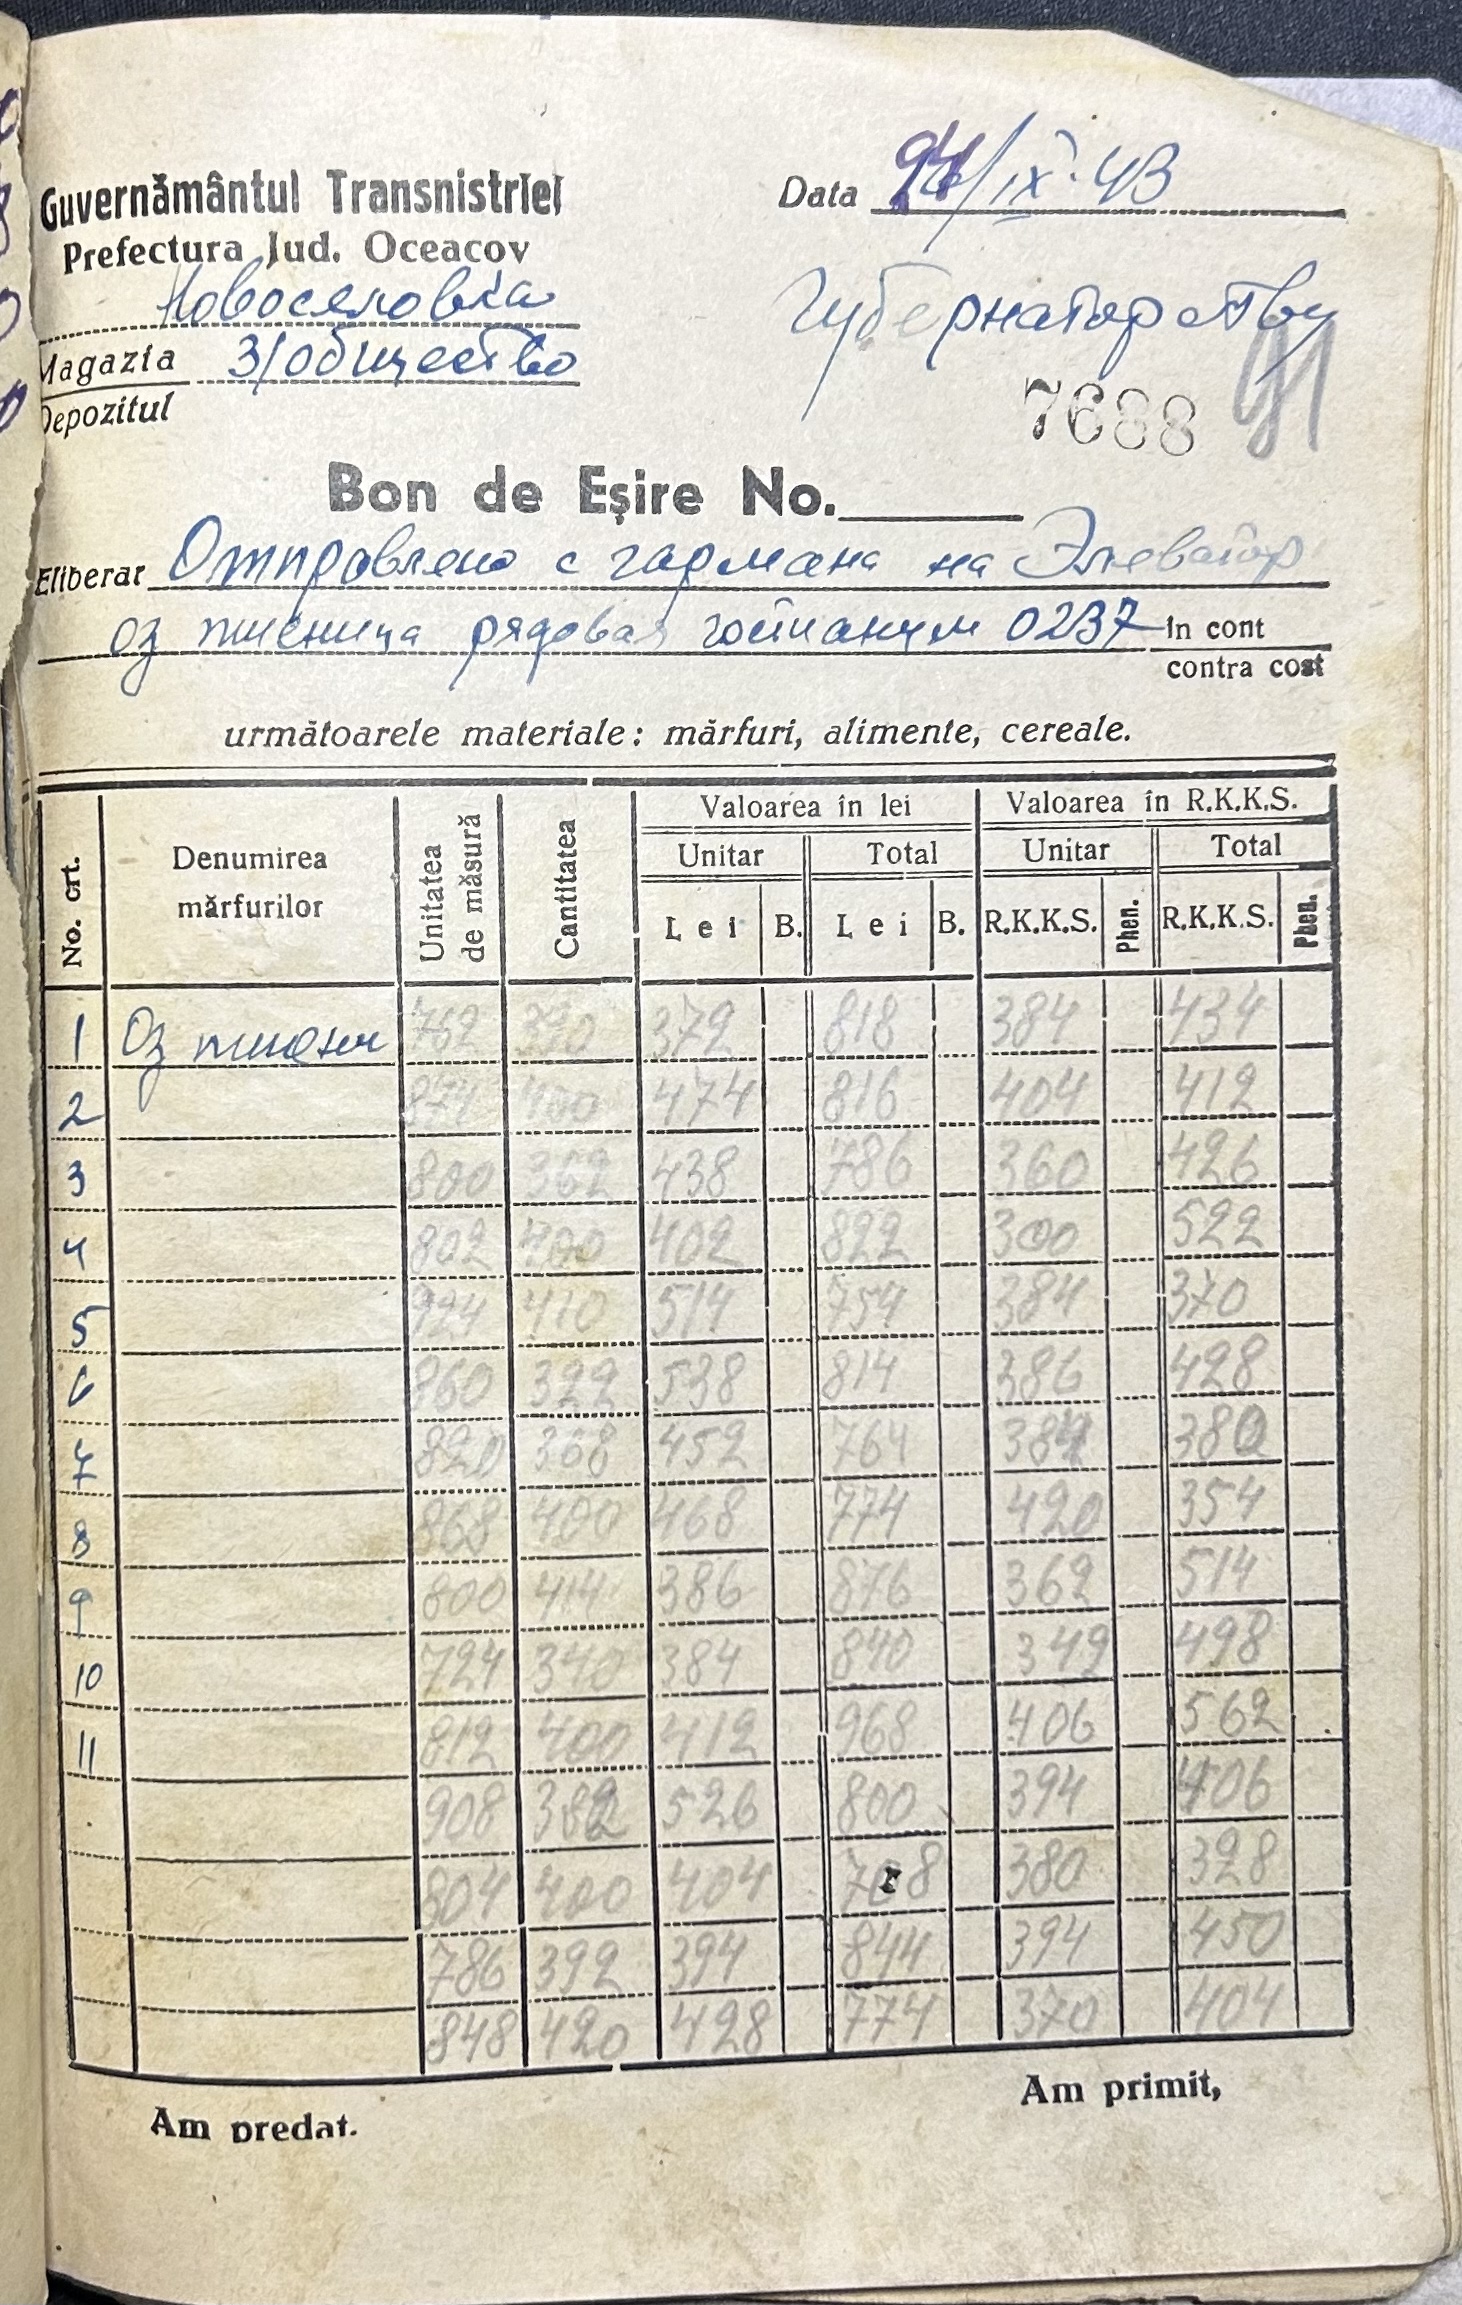 Guvernământul Transnistriei
Data /IX·43
Prefectura Jud. Oceacov
Новоселовка
Губернаторству
Magazia З/общество
Depozitul
7688 91
Bon de Eșire No.
Eliberar Отправлено с гармана на Элеватор
оз пшеница рядовая 0237 în cont
contra cost
următoarele materiale: mărfuri, alimente, cereale.
No. crt. Denumirea mărfurilor Unitatea de măsură Cantitatea Valoarea în lei Valoarea în R.K.K.S.
Unitar Total Unitar Total
Lei B. Lei B. R.K.K.S. Phen. R.K.K.S. Phen.
1 Оз пшениц 762 390 372 818 384 434
2 874 400 474 816 404 412
3 800 362 438 786 360 426
4 802 400 402 822 300 522
5 924 410 514 754 384 370
6 860 322 538 814 386 428
7 820 368 452 764 384 380
8 868 400 468 774 420 354
9 800 414 386 876 362 514
10 724 340 384 840 349 498
11 812 400 412 968 406 562
908 382 526 800 394 406
804 400 404 768 380 328
786 392 394 844 394 450
848 420 428 774 370 404
Am predat. Am primit,